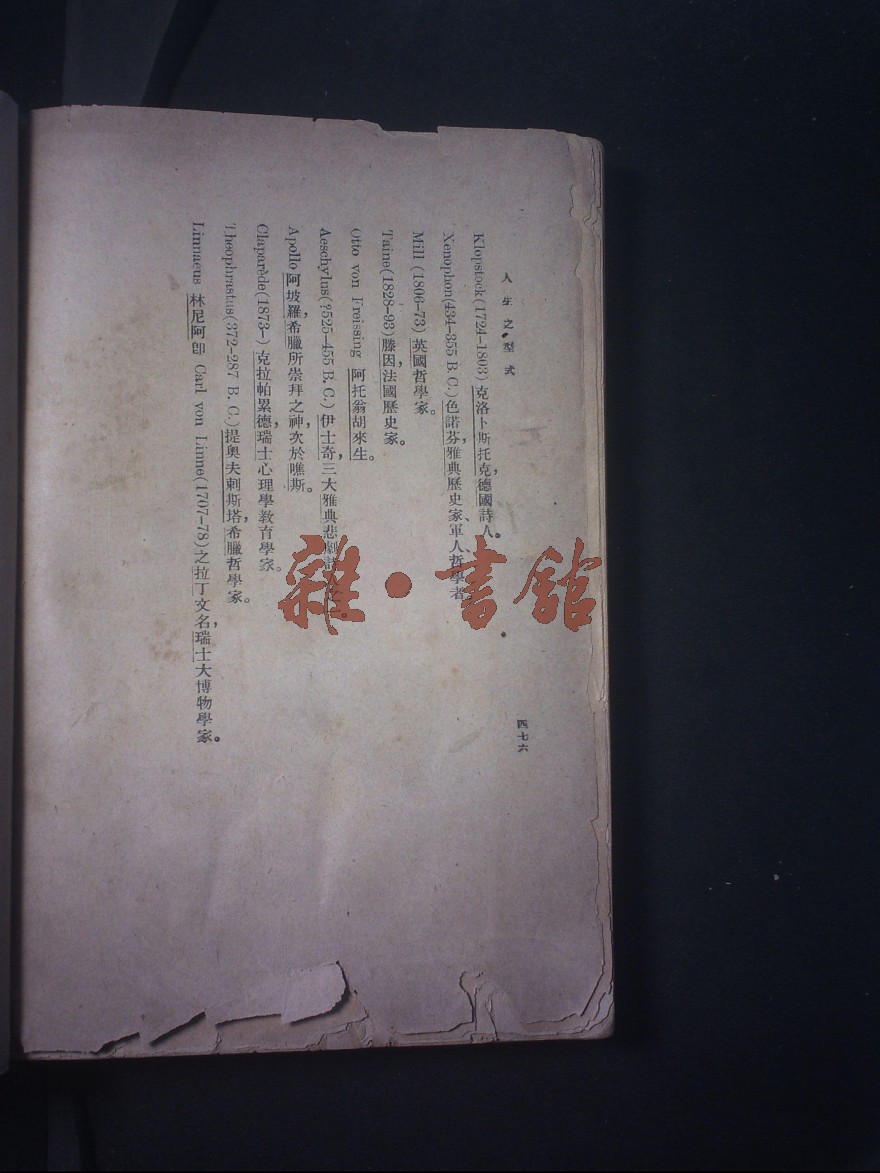 人生之型式
四七六
Klopstock(1724-1803)克洛卜斯托克,德國詩人。
Xenophon(434-355 B. C.)色諾芬,雅典歷史家、軍人、哲學者。
Mill (1806-73)英國哲學家。
Taine(1828-93)滕因,法國歷史家。
Otto von Freissing 阿托翁胡來生。
Aeschylus(?525-455 B. C.)伊士奇,三大雅典悲劇詩人之一。
Apollo阿坡羅,希臘所崇拜之神,次於噍斯。
Claparède(1873-)克拉帕累德,瑞士心理學教育學家。
Theophrastus(372-287 B. C.)提奧夫剌斯塔,希臘哲學家。
Linnaeus 林尼阿卽 Carl von Linne(1707-78)之拉丁文名,瑞士大博物學家。
雜·書館